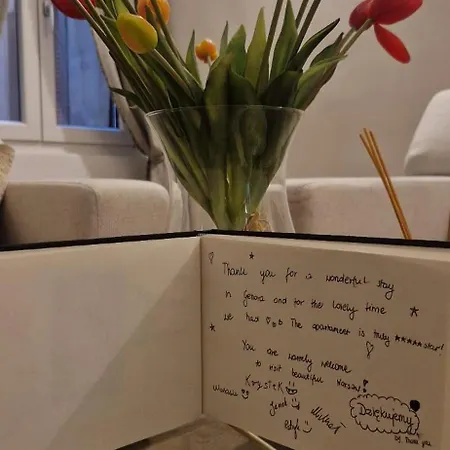 Thank you for a wonderful stay
in Genova and for the lovely time
we had. The apartament is truly ★★★★★star!
You are warmly welcome
to not beautiful Warsaw!
Krysiek
Dziękujemy
Thank you